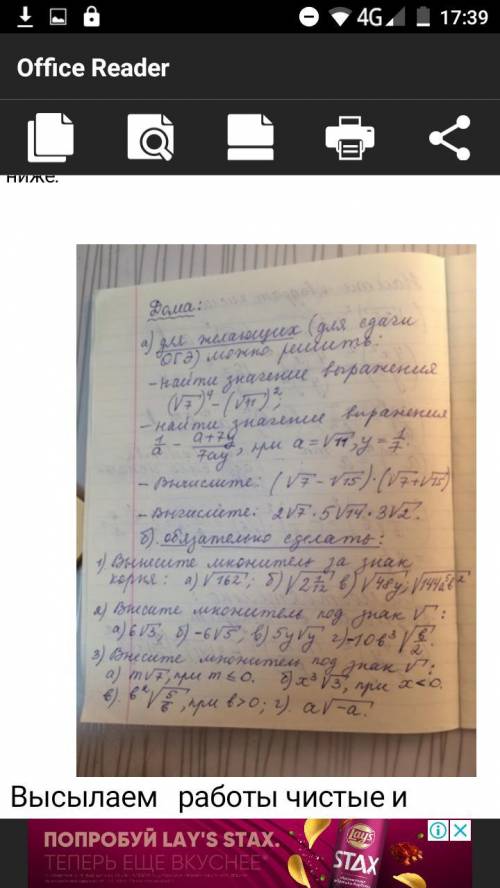 17:39
4G
Office Reader
ниже.
Дома:
а) для желающих (для сдачи
ОГЭ) можно решить:
- найти значение выражения
(√7)⁴ - (√11)²;
- найти значение выражения
1/a - (a+7y)/(7ay), при a = √11, y = 1/7.
- Вычислите: (√7 - √15)·(√7+√15)
- Вычислите: 2√7 · 5√14 · 3√2.
б). обязательно сделать:
1) Вынесите множитель за знак
корня: а) √162; б) √(2 7/12) в) √48y; √144a⁵b²
2) Внесите множитель под знак √ :
а) 6√3; б) -6√5; в) 5y√y г) -10b³√(b/2).
3) Внесите множитель под знак √ :
а) m√7, при m ≤ 0. б) x³√3, при x < 0.
в). b²√(5/b), при b > 0; г). a√-a.
Высылаем работы чистые и
ПОПРОБУЙ LAY'S STAX.
ТЕПЕРЬ ЕЩЕ ВКУСНЕЕ*
Lay's
STAX